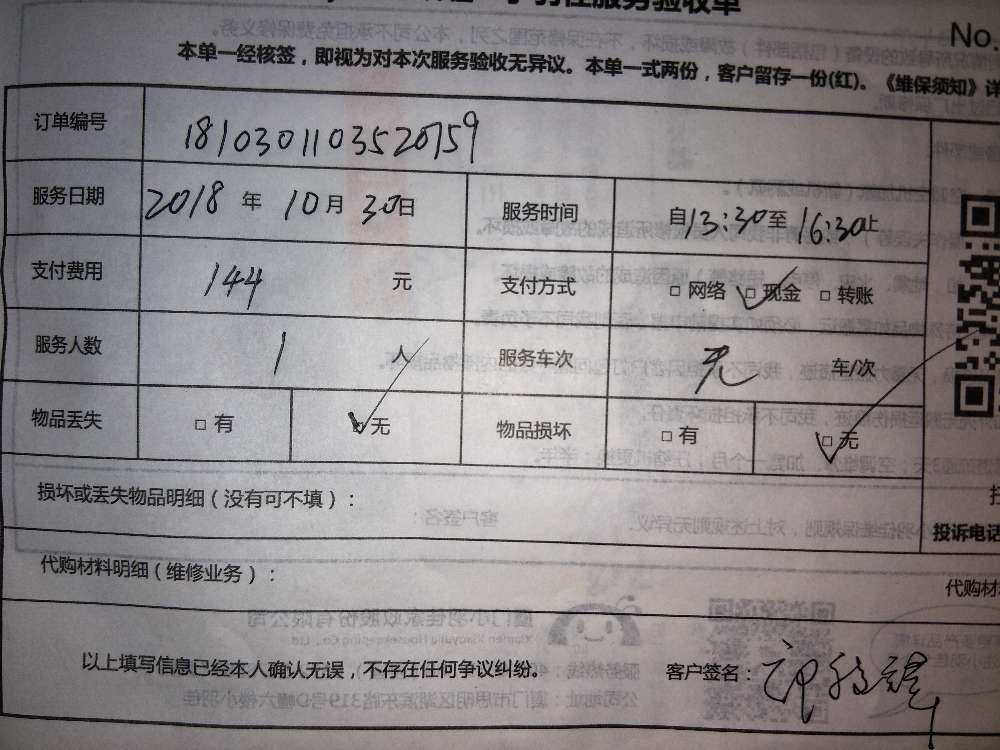 服务验收单
No.
本单一经核签，即视为对本次服务验收无异议。本单一式两份，客户留存一份(红)。《维保须知》详
订单编号 1810301103520759
服务日期 2018 年 10 月 30 日 服务时间 自 13:30 至 16:30 止
支付费用 144 元 支付方式 □ 网络 □ 现金 □ 转账
服务人数 1 人 服务车次 无 车/次
物品丢失 □ 有 □ 无 物品损坏 □ 有 □ 无
损坏或丢失物品明细（没有可不填）：
投诉电话
代购材料明细（维修业务）：
代购材
以上填写信息已经本人确认无误，不存在任何争议纠纷。 客户签名：